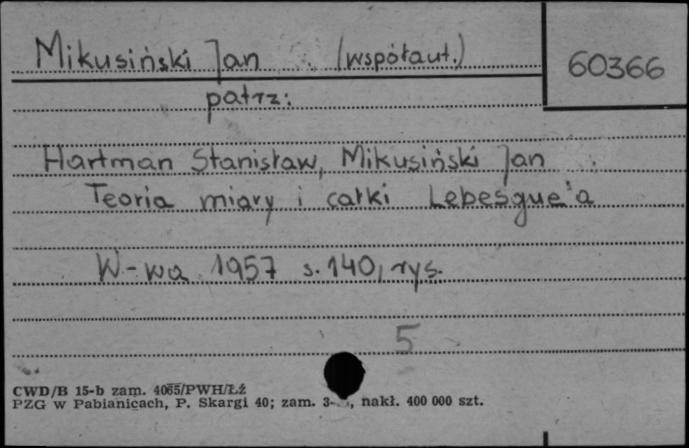 Mikusiński Jan (współaut.)
60366
patrz:
Hartman Stanisław, Mikusiński Jan
Teoria miary i całki Lebesgue'a
W-wa 1957 s. 140, rys.
5
CWD/B 15-b zam. 4065/PWH/Łź
PZG w Pabianicach, P. Skargi 40; zam. nakł. 400 000 szt.